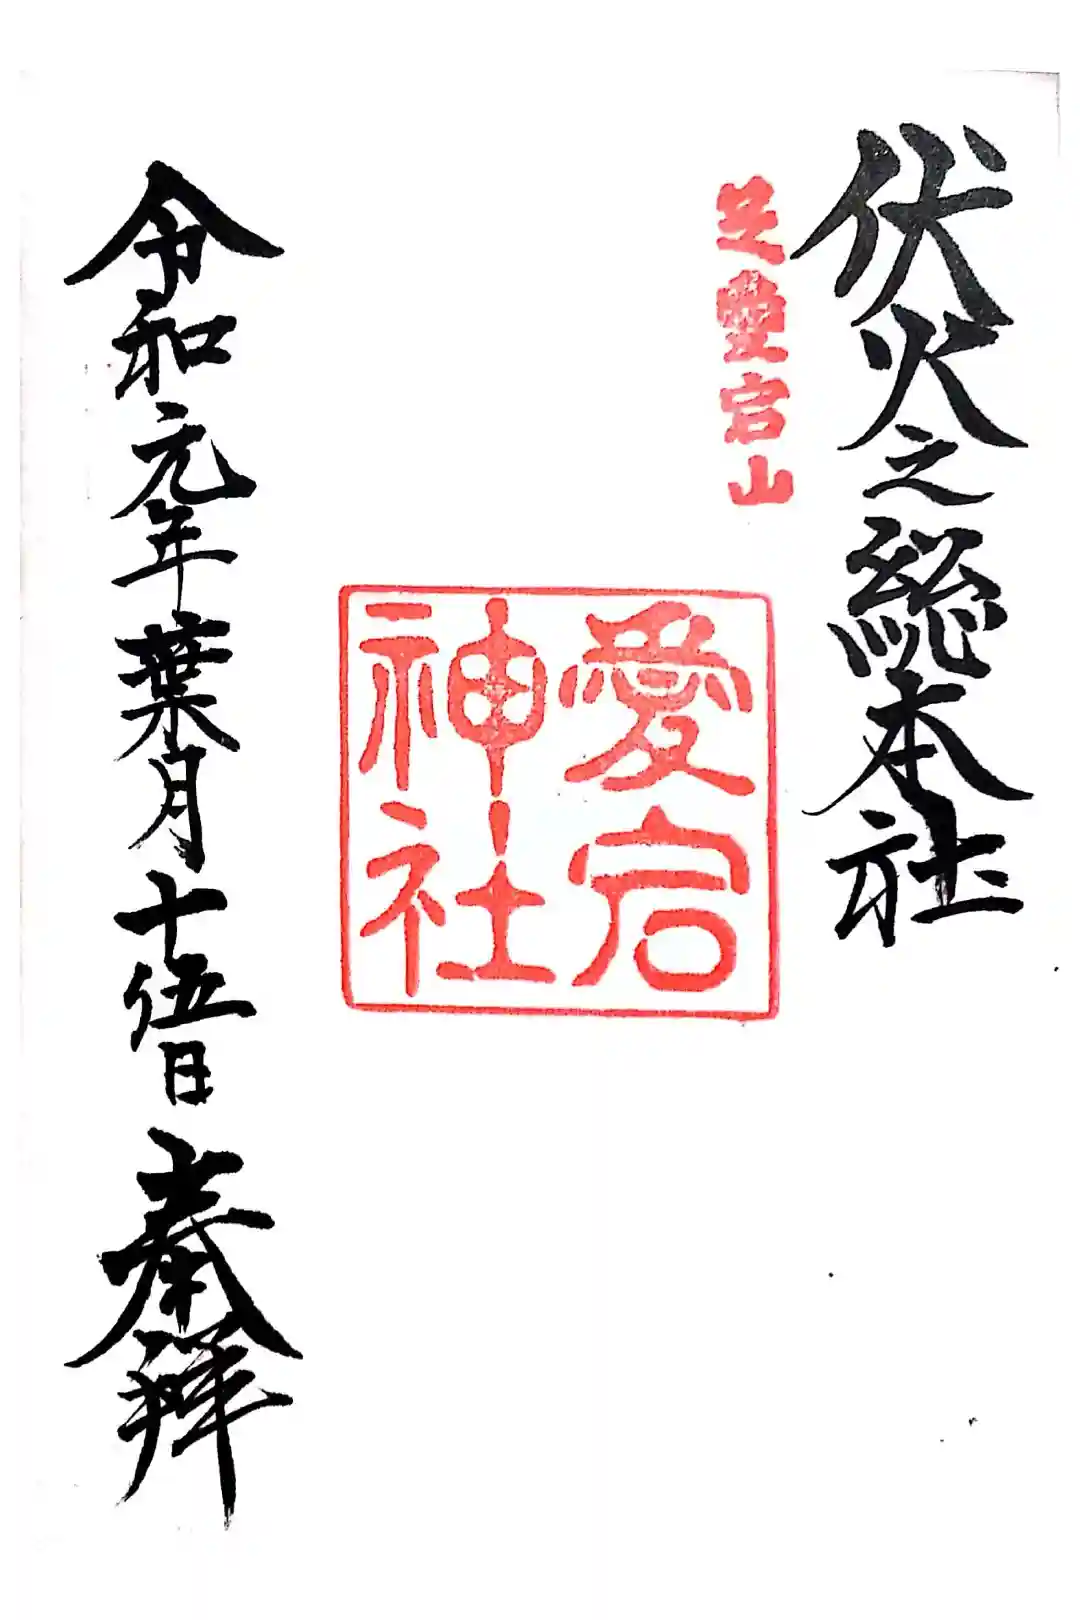 伏火之総本社
芝愛宕山
愛宕
神社
令和元年葉月十伍日 奉拝